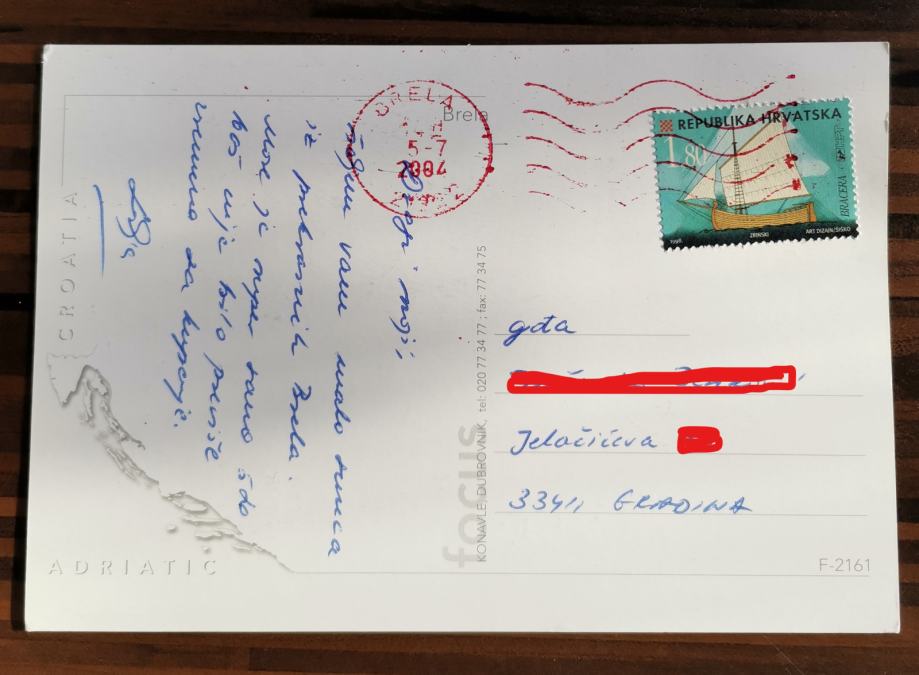 Dragi moji,
šaljem vam malo sunca
iz prekrasnih Brela.
More je super samo što
baš nije bilo previše
vremena za kupanje.
CROATIA
ADRIATIC
Brela
BRELA
5-7
2004
REPUBLIKA HRVATSKA
1.80
BRACERA
1998. ZRINSKI ART DIZAJN/ŠIŠKO
focus
KONAVLE, DUBROVNIK, tel: 020 77 34 77; fax: 77 34 75
gđa
Jelačićeva
33411 GRADINA
F-2161